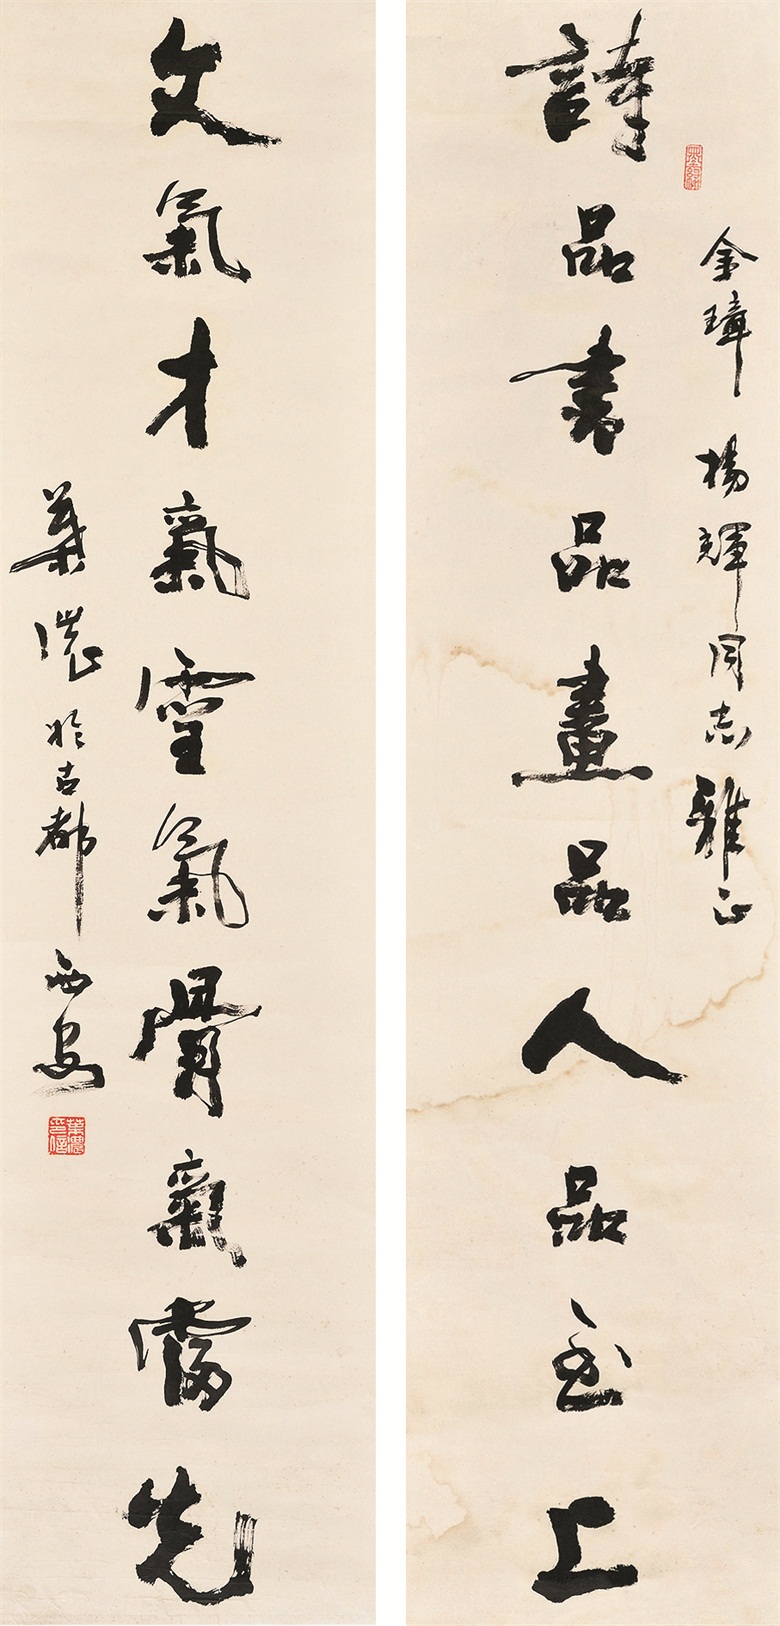 金璋 楊輝同志雅正
詩品書品畫品人品至上
文氣才氣靈氣骨氣當先
葉濃於古都西安
葉濃印信